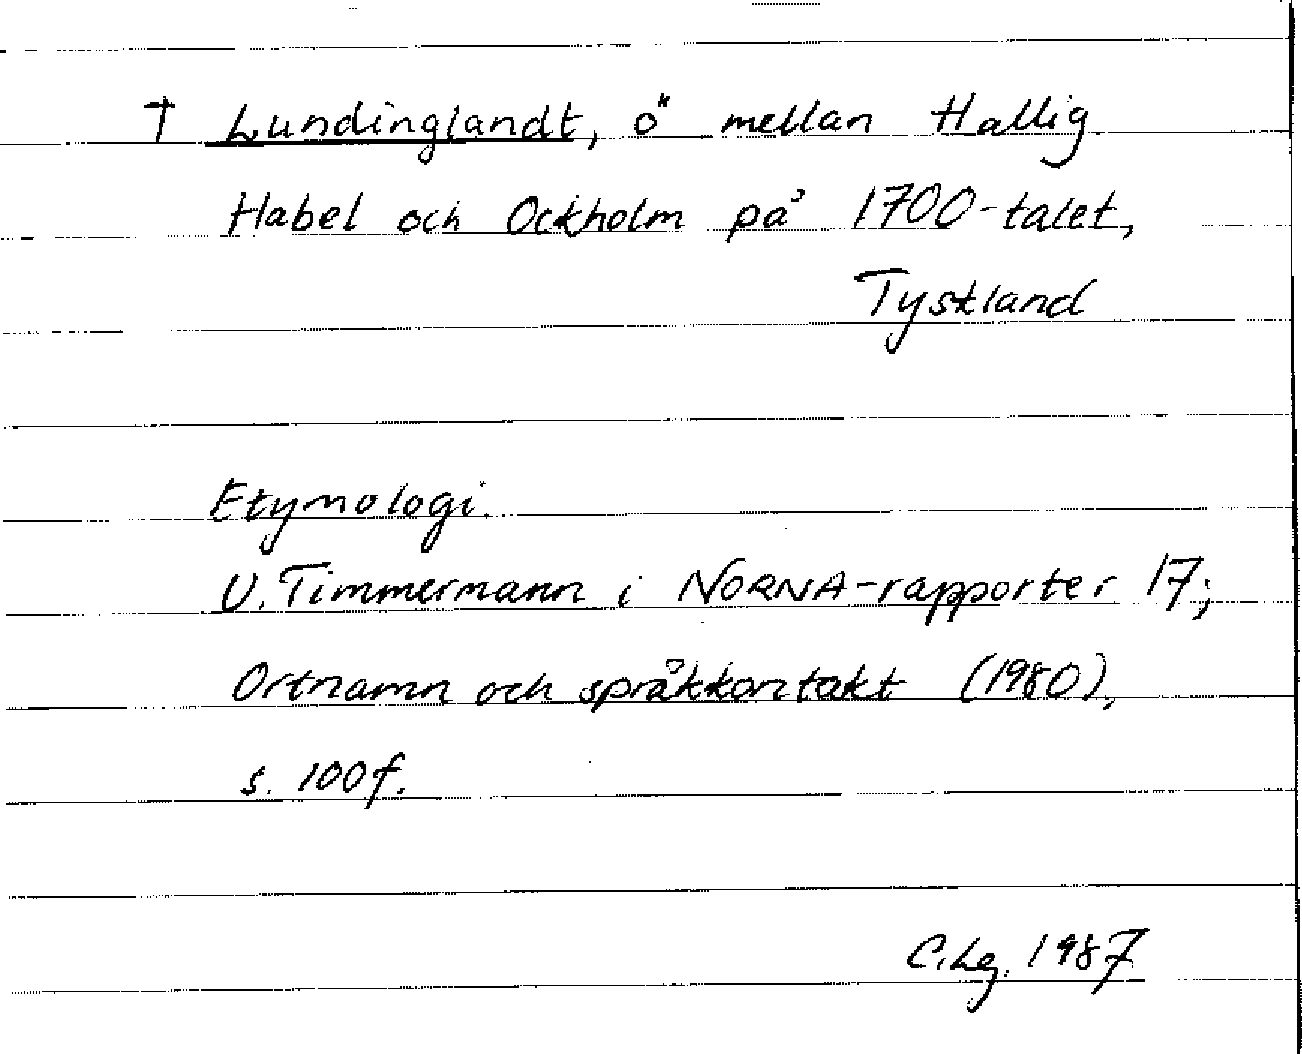 † Lundinglandt, ö mellan Hallig
Habel och Ockholm på 1700-talet,
Tyskland
Etymologi.
U. Timmermann i NORNA-rapporter 17;
Ortnamn och språkkontakt (1980),
s. 100f.
C.Lg. 1987